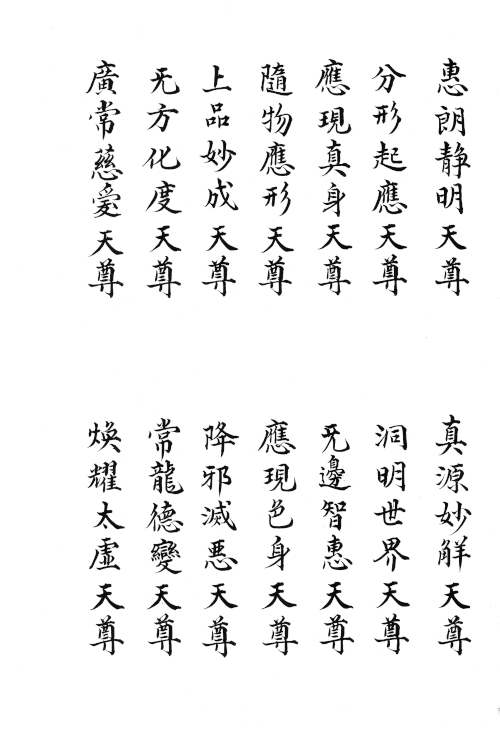 惠朗静明天尊
真源妙解天尊
分形起應天尊
洞明世界天尊
應現真身天尊
无邊智惠天尊
隨物應形天尊
應現色身天尊
上品妙成天尊
降邪滅惡天尊
无方化度天尊
常龍德變天尊
廣常慈愛天尊
煥耀太虛天尊